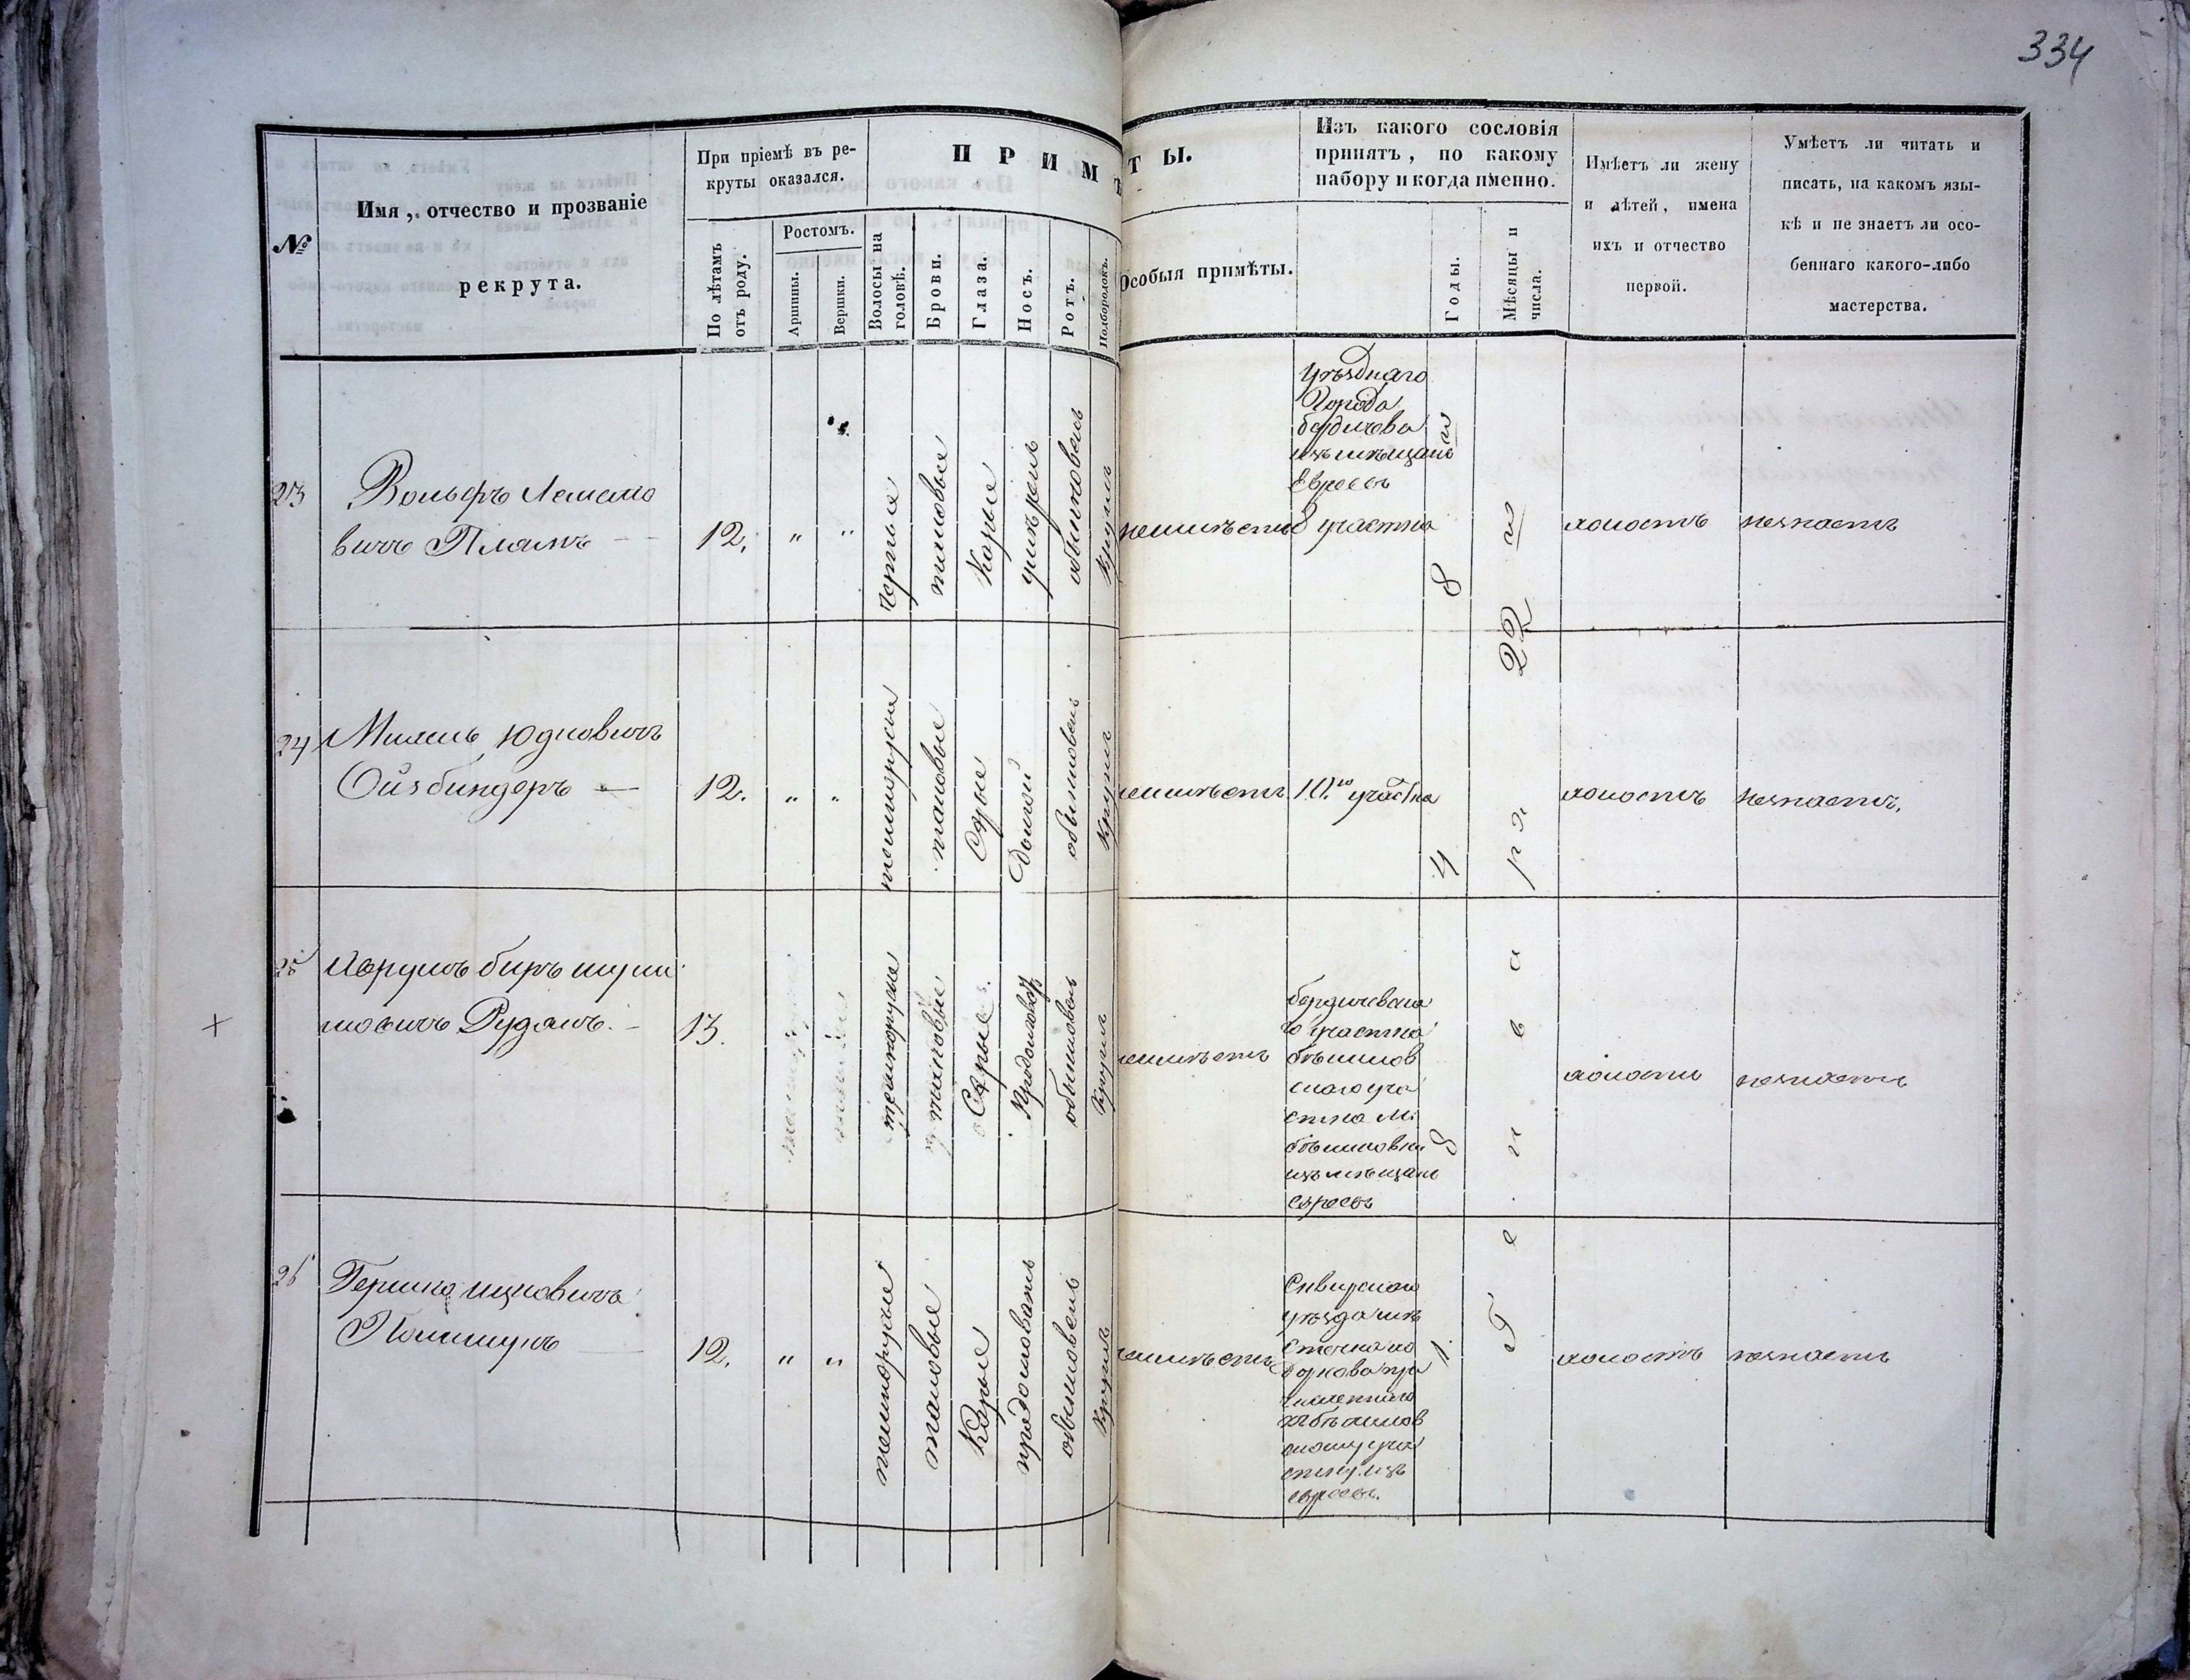 334
№
Имя, отчество и прозваніе
рекрута.
При пріемѣ въ ре-
круты оказался.
По лѣтамъ
отъ роду.
Ростомъ.
Аршины.
Вершки.
ПРИМѢТЫ.
Волосы на
головѣ.
Брови.
Глаза.
Носъ.
Ротъ.
Подбородокъ.
Особыя примѣты.
Изъ какого сословія
принятъ, по какому
набору и когда именно.
Годы.
Мѣсяцы и
числа.
Имѣетъ ли жену
и дѣтей, имена
ихъ и отчество
первой.
Умѣетъ ли читать и
писать, на какомъ язы-
кѣ и не знаетъ ли осо-
беннаго какого-либо
мастерства.
23
Вольфъ Лейзеро
вичъ
12.
" "
черные
таковые
Карые
умѣренъ
обыкновенъ
Круглъ
неимѣетъ
Уѣзднаго
Города
Бердичева
изъ мѣщанъ
Евреевъ
8 участка
холостъ
незнаетъ
24
Юдковичъ
Ойзбиндеръ
12.
" "
темнорусые
таковые
Сѣрые
Долгой
обыкновенъ
Круглъ
неимѣетъ
10.го участка
холостъ
незнаетъ.
25
Аврумъ Беръ Шули
мовичъ
13.
темнорусые
таковые
Сѣрые
Продолговатъ
обыкновенъ
Круглъ
неимѣетъ
Бердичевска
го участка
изъ мѣщанъ
евреевъ
холостъ
незнаетъ
26
Гершко Ицковичъ
12.
" "
темнорусые
таковые
Карые
продолговатъ
обыкновенъ
Круглъ
неимѣетъ
Сквирскаго
уѣзда мѣ
стечка
при
численнаго
скому уча
стку изъ
евреевъ.
холостъ
незнаетъ
1848
Генваря 22